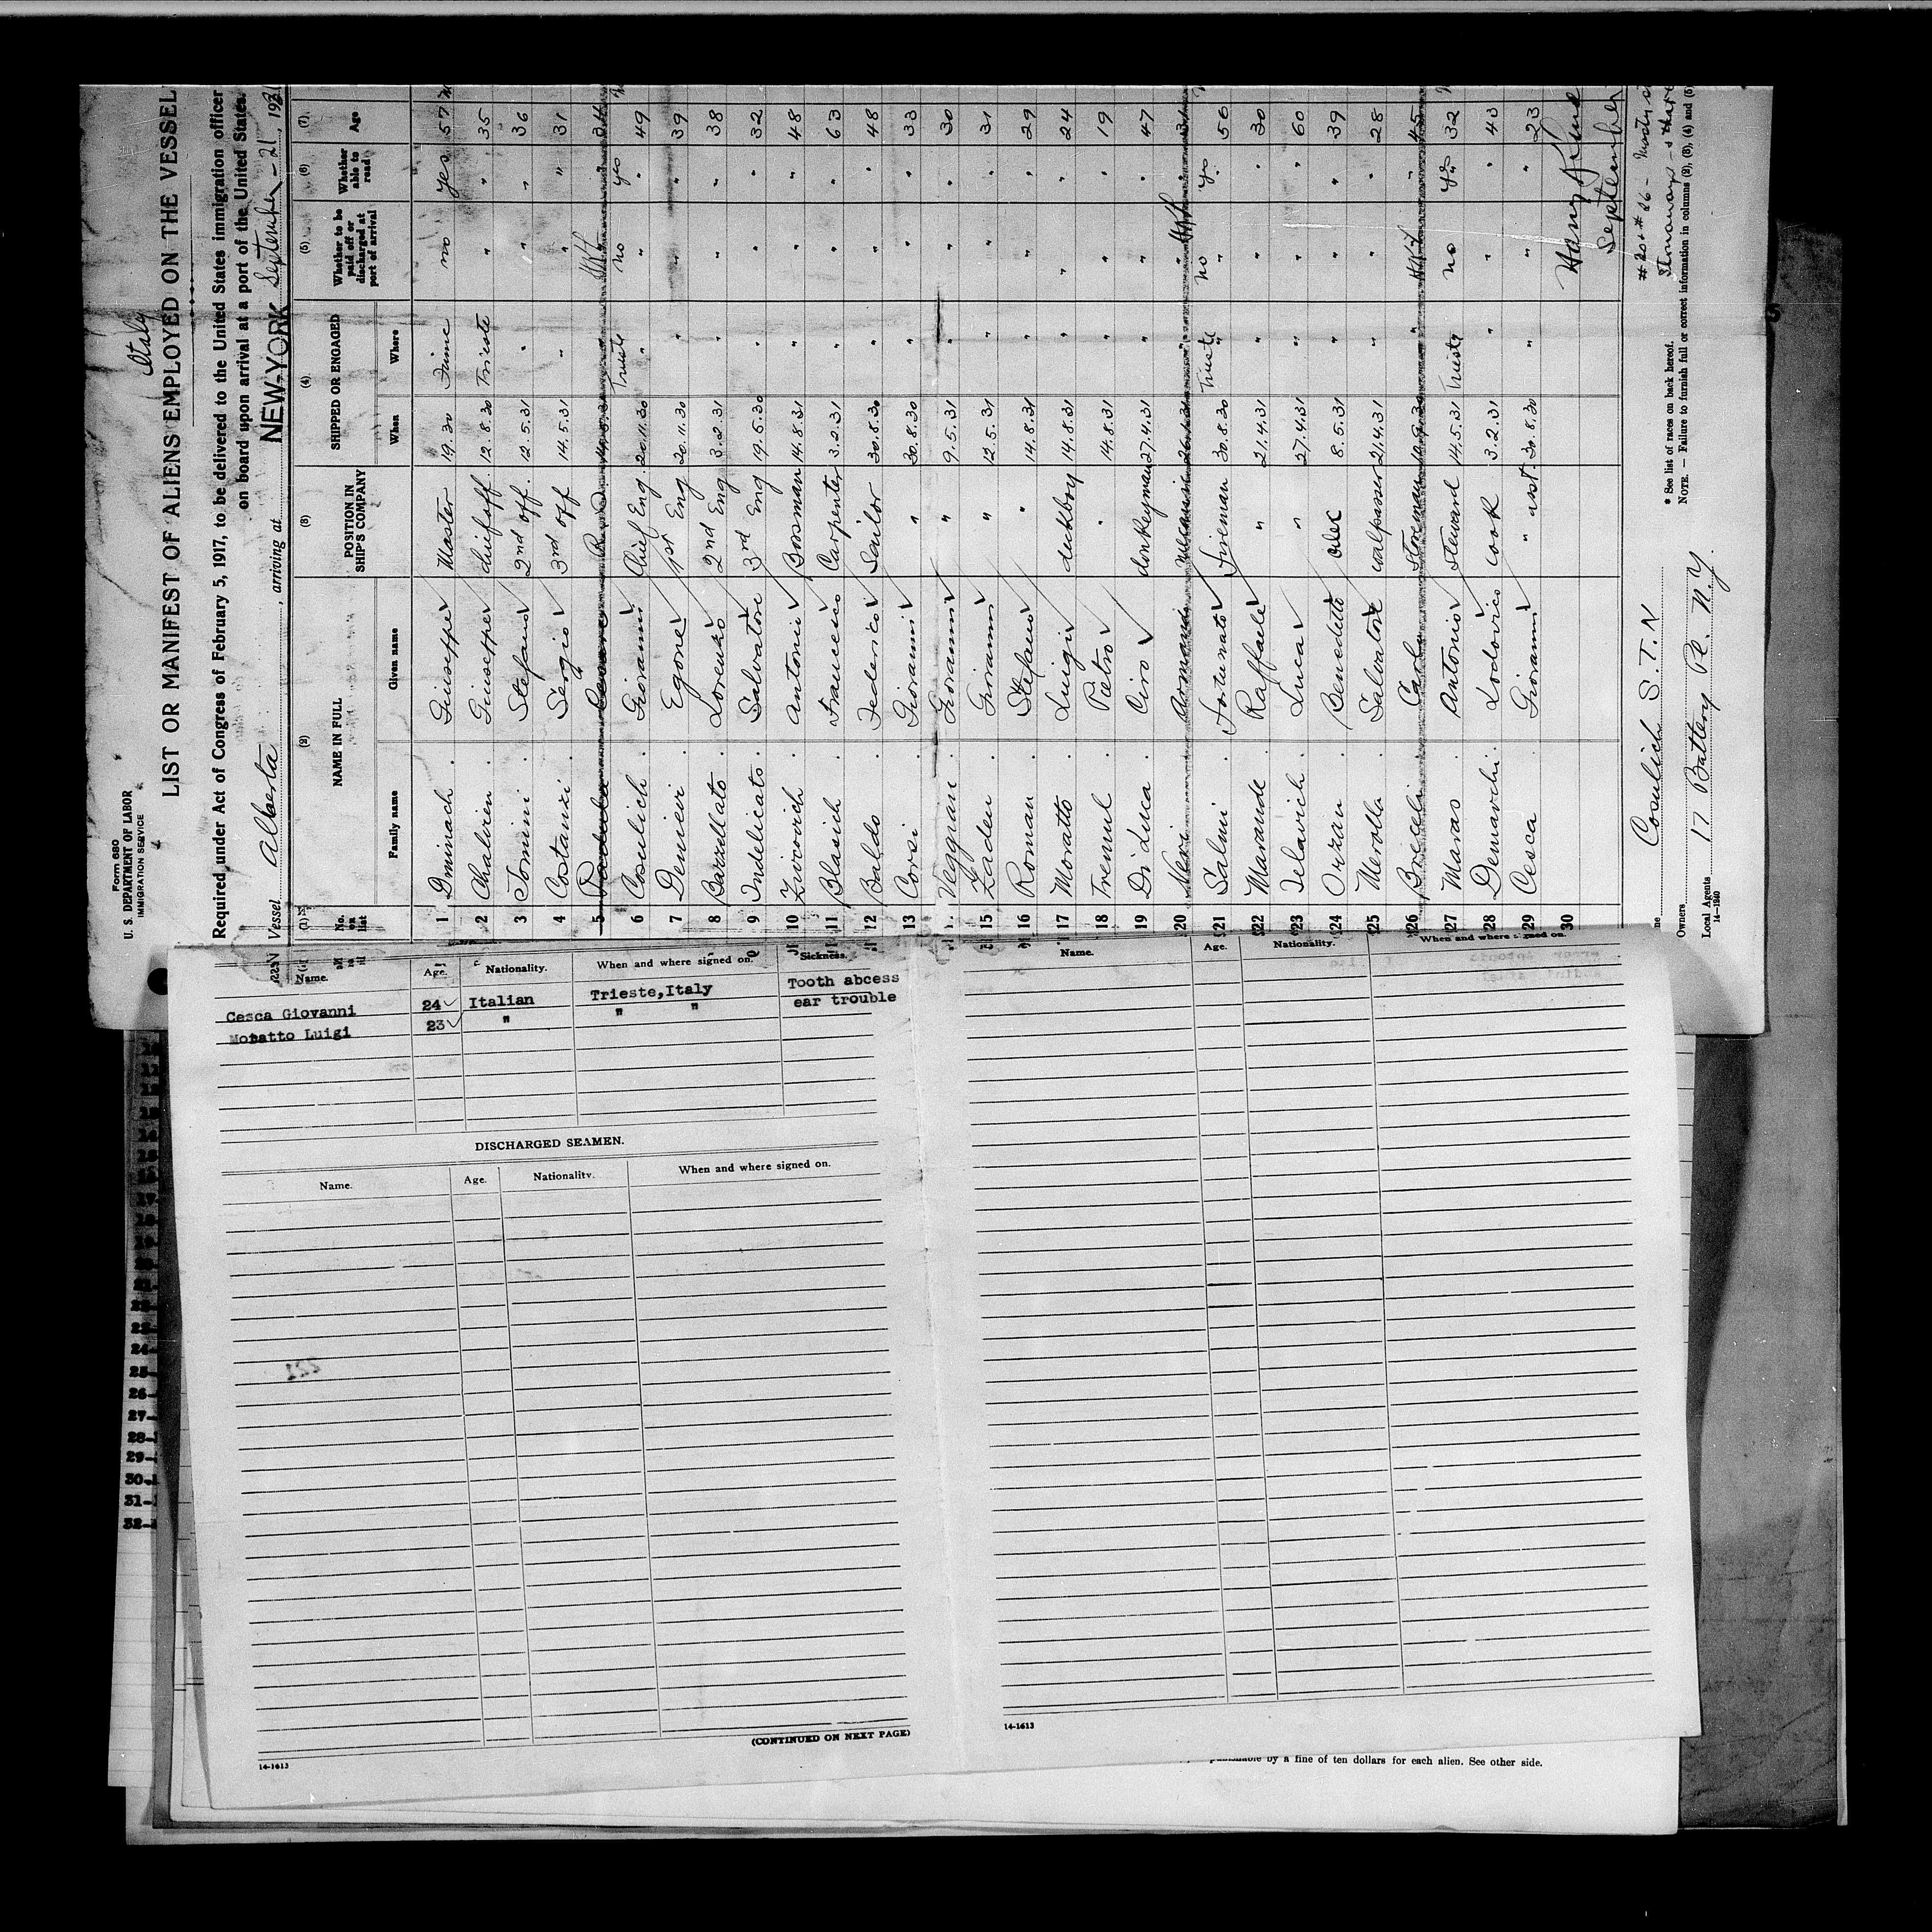 Form 680
U. S. DEPARTMENT OF LABOR
IMMIGRATION SERVICE
Italy
LIST OR MANIFEST OF ALIENS EMPLOYED ON THE VESSEL
Required under Act of Congress of February 5, 1917, to be delivered to the United States immigration officer
on board upon arrival at a port of the United States.
Vessel Alberta, arriving at NEW YORK September - 21, 1931
(1) (2) (3) (4) (5) (6) (7)
No. on list NAME IN FULL POSITION IN SHIP'S COMPANY SHIPPED OR ENGAGED Whether to be paid off or discharged at port of arrival Whether able to read Age
Family name Given name When Where
1 Giuseppe Master 19.30 Fiume no yes 57
2 Chalvien Giuseppe chief off. 12.8.30 Trieste " " 35
3 Tomini Stefano 2nd off. 12.5.31 " " " 36
4 Costanzi Sergio 3rd off 14.5.31 " " " 31
5
6 Cosulich Giovanni Chief Eng. 20.11.30 Trieste no yes 49
7 Denieir Egone 1st Eng 20.11.30 " " " 39
8 Barzellato Lorenzo 2nd Eng 3.2.31 " " " 38
9 Indelicato Salvatore 3rd Eng 19.5.30 " " " 32
10 Zvicovich Antonio Bosman 14.8.31 " " " 48
11 Blasich Francesco Carpenter 3.2.31 " " " 63
12 Baldo Federico Sailor 30.8.30 " " " 48
13 Corsi Giovanni " 30.8.30 " " " 33
Veggnan Giovanni " 9.5.31 " " " 30
15 Zaden Giovanni " 12.5.31 " " " 31
16 Roman Stefano " 14.8.31 " " " 29
17 Moratto Luigi deckboy 14.8.31 " " " 24
18 Tremul Pietro " 14.8.31 " " " 19
19 Di Luca Ciro donkeyman 27.4.31 " " " 47
20 Neri
21 Salmi Fortunato Fireman 30.8.30 Trieste no yes 56
22 Marande Raffaele " 21.4.31 " " " 30
23 Luca " 27.4.31 " " " 60
24 Orzan Benedetto oiler 8.5.31 " " " 39
25 Merolla Salvatore coalpasser 21.4.31 " " " 28
26 Carlo Storeman 45
27 Maras Antonio Steward 14.5.31 Trieste no yes 32
28 Demarchi Lodovico cook 3.2.31 " " " 43
29 Cesca Giovanni " asst. 30.8.30 " " " 23
30
September
#20 + #26
Owners Cosulich S. T. N
Local Agents 17 Battery Pl. N.Y.
14-1240
* See list of races on back hereof.
NOTE. — Failure to furnish full or correct information in columns (2), (3), (4) and (5)
Name. Age. Nationality. When and where signed on. Sickness.
Cesca Giovanni 24 Italian Trieste,Italy Tooth abcess
Moratto Luigi 23 " " " ear trouble
DISCHARGED SEAMEN.
Name. Age. Nationality. When and where signed on.
221
(CONTINUED ON NEXT PAGE)
14-1613
Name. Age. Nationality. When and where signed on.
14-1613
by a fine of ten dollars for each alien. See other side.
23
24
25
26
27
28
29
30
31
32